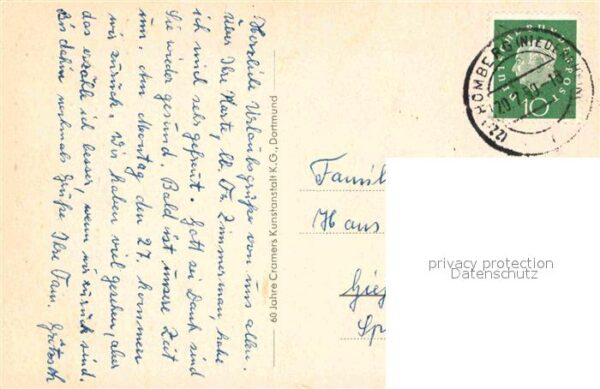 Herzliche Urlaubsgrüße von uns allen.
Über Ihre Karte, lb. Fr. Zimmermann, habe
ich mich sehr gefreut. Gott sei Dank sind
Sie wieder gesund. Bald ist unsere Zeit
um. Am Montag den 27. kommen
wir zurück. Wir haben viel gesehen, aber
das erzähle ich besser, wenn wir zurück sind.
Bis dahin nochmals Grüße Ihre Fam.
60 Jahre Cramers Kunstanstalt K.G., Dortmund
DEUTSCHE BUNDESPOST
10
(22) HOMBERG (NIEDERRHEIN)
Famil
Haus
Gieß
Sp
privacy protection
Datenschutz